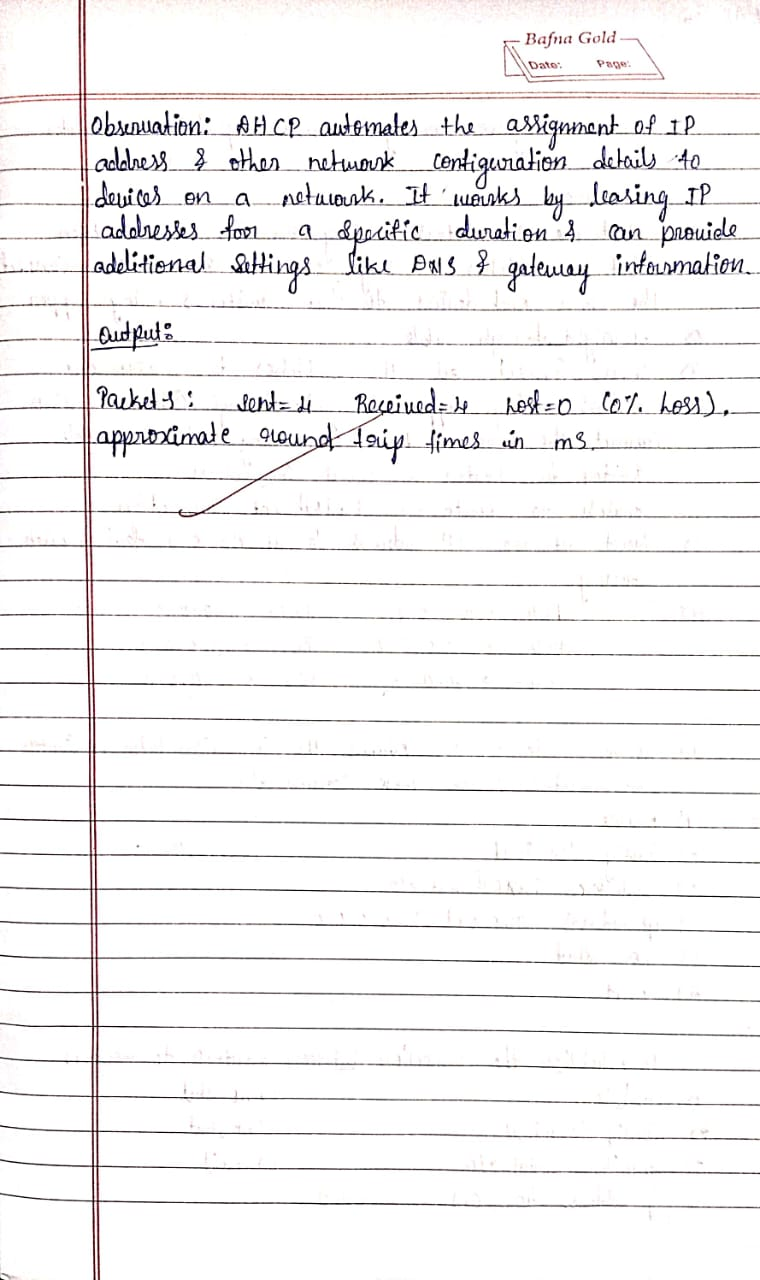 Bafna Gold
Date: Page:
Observation: DHCP automates the assignment of IP
address & other network configuration details to
devices on a network. It works by leasing IP
addresses for a specific duration & can provide
additional settings like DNS & gateway information.
Output:
Packets: sent=4 Received=4 Lost=0 (0% Loss),
approximate round trip times in ms.